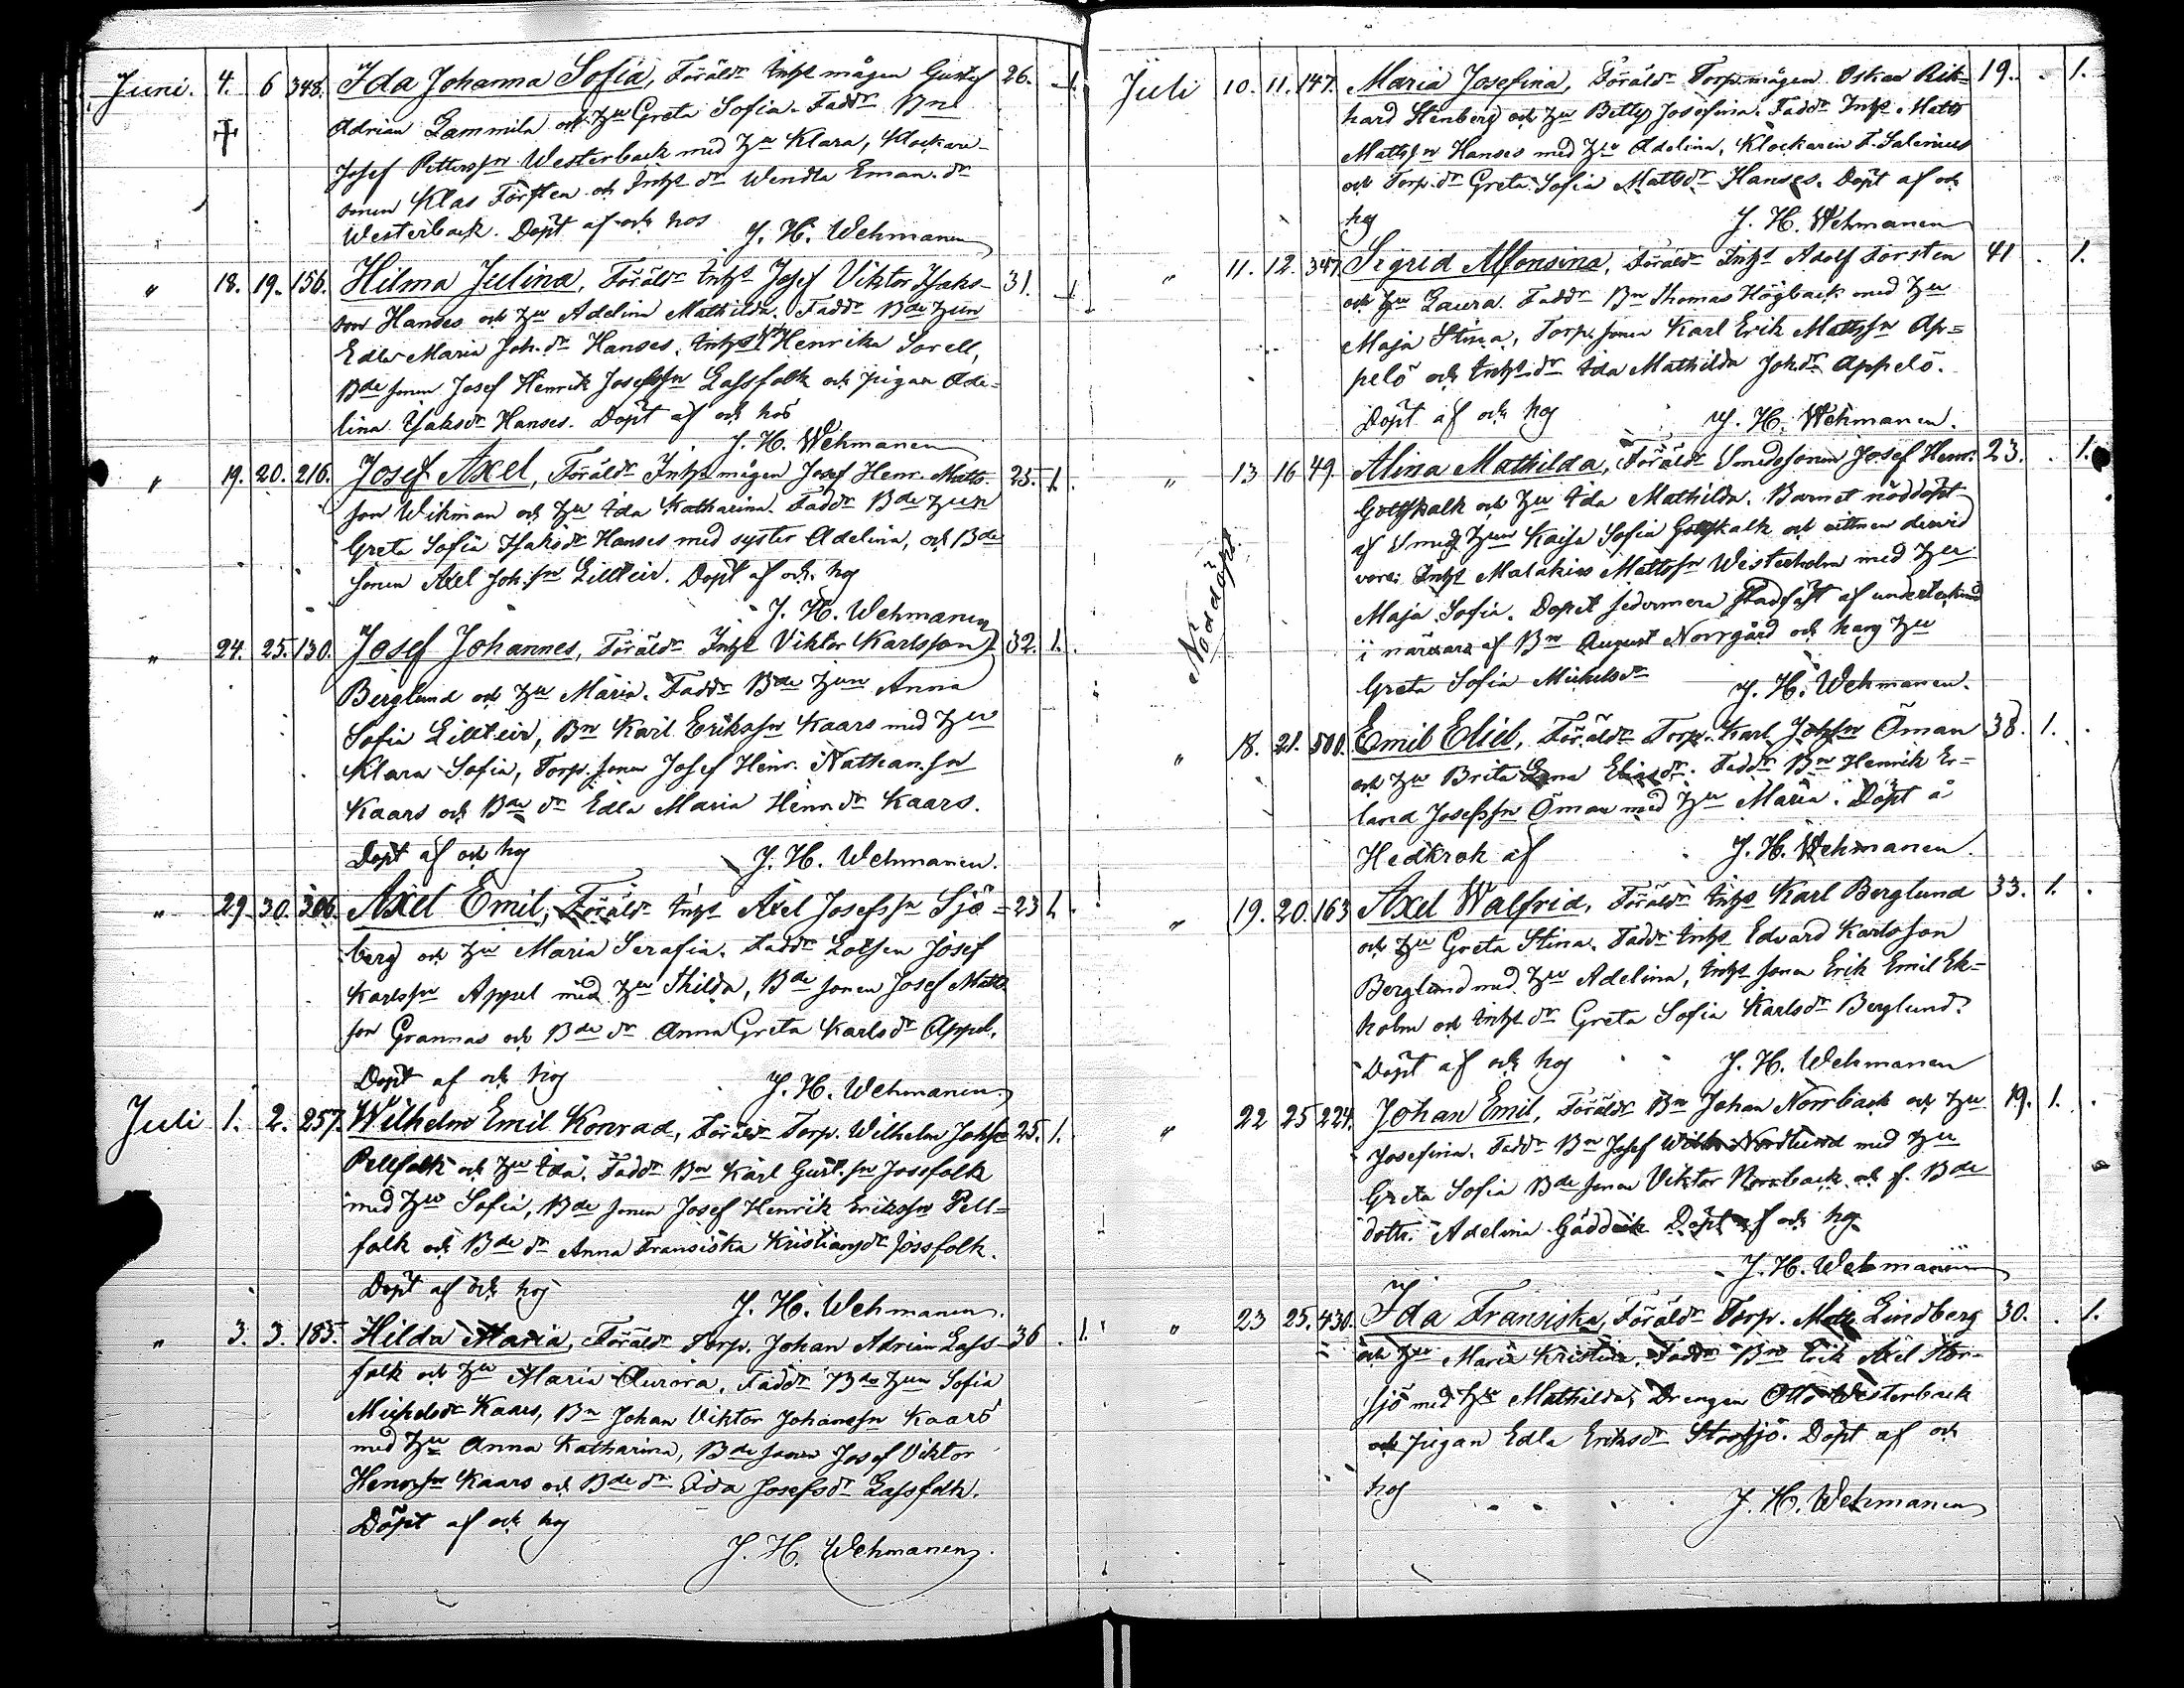 Juni. 4. 6 348. Ida Johanna Sofia, Föräldr Inhs mågen Gustaf 26. 1.
Adrian Lammila och hu Greta Sofia. Faddr Bn
Josef Pettersson Westerback med hu Klara, Klockare-
sonen Klas Forsten och Inhs dr Wendla Eman. dr
Westerback. Döpt af och hos J. H. Wehmanen
" 18. 19. 156. Hilma Julina, Föräldr Inhs Josef Viktor Isaks- 31. 1
son Hanses och hu Adelina Mathilda. Faddr Bde hun
Edla Maria Joh. dr Hanses, Henrika Sorell,
Bde sonen Josef Henrik Josefsson Lassfolk och pigan Ade-
lina Isaksdr Hanses. Döpt af och hos
J. H. Wehmanen
" 19. 20. 216. Josef Axel, Föräldr Inhs mågen Josef Henr. Matts- 25. 1.
son Wikman och hu Ida Katharina. Faddr Bde hun
Greta Sofia Isaksdr Hanses med syster Adelina, och Bde
sonen Axel Joh. sn Lillteir. Döpt af och hos
J. H. Wehmanen
" 24. 25. 130. Josef Johannes, Föräldr Inhs Viktor Karlsson 32. 1.
Berglund och hu Maria. Faddr Bde hun Anna
Sofia Lillteir, Bn Karl Eriksson Kaars med hu
Klara Sofia, Torp. sonen Josef Henr. Nathansn
Kaars och Bde dr Edla Maria Henr. dr Kaars.
Döpt af och hos J. H. Wehmanen.
" 29. 30. 306. Axel Emil, Föräldr Inhs Axel Josefssn Sjö= 23 1.
berg och hu Maria Serafia. Faddr Lotsen Josef
Karlssn Appel med hu Thilda, Bde sonen Josef Matts
son Grannas och Bde dr Anna Greta Karlsdr Appel.
Döpt af och hos J. H. Wehmanen.
Juli 1. 2. 257. Wilhelm Emil Konrad, Föräldr Torp. Wilhelm Johssn 25. 1.
Pellfolk och hu Ida. Faddr Bn Karl Gust. sn Jossfolk
med hu Sofia, Bde sonen Josef Henrik Erikssn Pell=
folk och Bde dr Anna Fransiska Kristiansdr Jossfolk.
Döpt af och hos J. H. Wehmanen.
" 3. 3. 183. Hilda Maria, Föräldr Torp. Johan Adrian Lass- 36 . 1.
folk och hu Maria Aurora. Faddr Bde hun Sofia
Michelsdr Kaars, Bn Johan Viktor Johanssn Kaars
med hu Anna Katharina, Bde sonen Josef Viktor
Henrssn Kaars och Bde dr Ida Josefsdr Lassfolk.
Döpt af och hos
J. H. Wehmanen.
Juli 10. 11. 147. Maria Josefina, Föräldr Torp. mågen Oskar Rik= 19. . 1.
hard Stenberg och hu Betty Josefina. Faddr Inhs Matts
Mattssn Hanses med hu Adelina, Klockaren F. Salenius
och Torp. dr Greta Sofia Mattsdr Hanses. Döpt af och
hos J. H. Wehmanen
" 11. 12. 347 Sigrid Alfonsina, Föräldr Inhs Adolf Forsten 41 . 1.
och hu Laura. Faddr Bn Thomas Högback med hu
Maja Stina, Torp. sonen Karl Erik Mattssn Ap=
pelö och Inhs dr Ida Mathilda Joh.dr Appelö.
Döpt af och hos J. H. Wehmanen.
" 13 16 49. Alina Mathilda, Föräldr Smedssonen Josef Henr. 23. . 1.
Gottskalk och hu Ida Mathilda. Barnet nöddöpt
af Smed hun Kajsa Sofia Gottskalk och vittnen dervid
voro: Inhs Malakias Mattssn Westerholm med hu
Maja Sofia. Dopet sedermera stadfäst af undertecknad
i närvaro af Bn August Norrgård och hans hu
Greta Sofia Michelsdr J. H. Wehmanen.
Nöddöpt.
" 18. 21. 500. Emil Eliel, Föräldr Torp. Karl Johssn Öman 38. 1. .
och hu Brita Lena Eliasdr. Faddr Bn Henrik Er=
land Josefssn Öman med hu Maria. Döpt å
Hedkrok af J. H. Wehmanen.
" 19. 20. 163 Axel Walfrid, Föräldr Inhs Karl Berglund 33. 1. .
och hu Greta Stina. Faddr Inhs Edvard Karlsson
Berglund med hu Adelina, Inhs sonen Erik Emil Ek=
holm och Inhs dr Greta Sofia Karlsdr Berglund.
Döpt af och hos J. H. Wehmanen
" 22 25 224. Johan Emil, Föräldr Bn Johan Norrback och hu 19. 1. .
Josefina. Faddr Bn Josef Nordlund med hu
Greta Sofia Bde sonen Viktor Norrback och f. Bde
dottr. Adelina Gäddvik Döpt af och hos
J. H. Wehmanen
" 23 25. 430. Ida Fransiska, Föräldr Torp. Matts Lindberg 30. . 1.
och hu Maria Kristina. Faddr Bn Erik Axel Stor-
sjö med hu Mathilda, Drengen Otto Westerback
och pigan Edla Eriksdr Storsjö. Döpt af och
hos J. H. Wehmanen